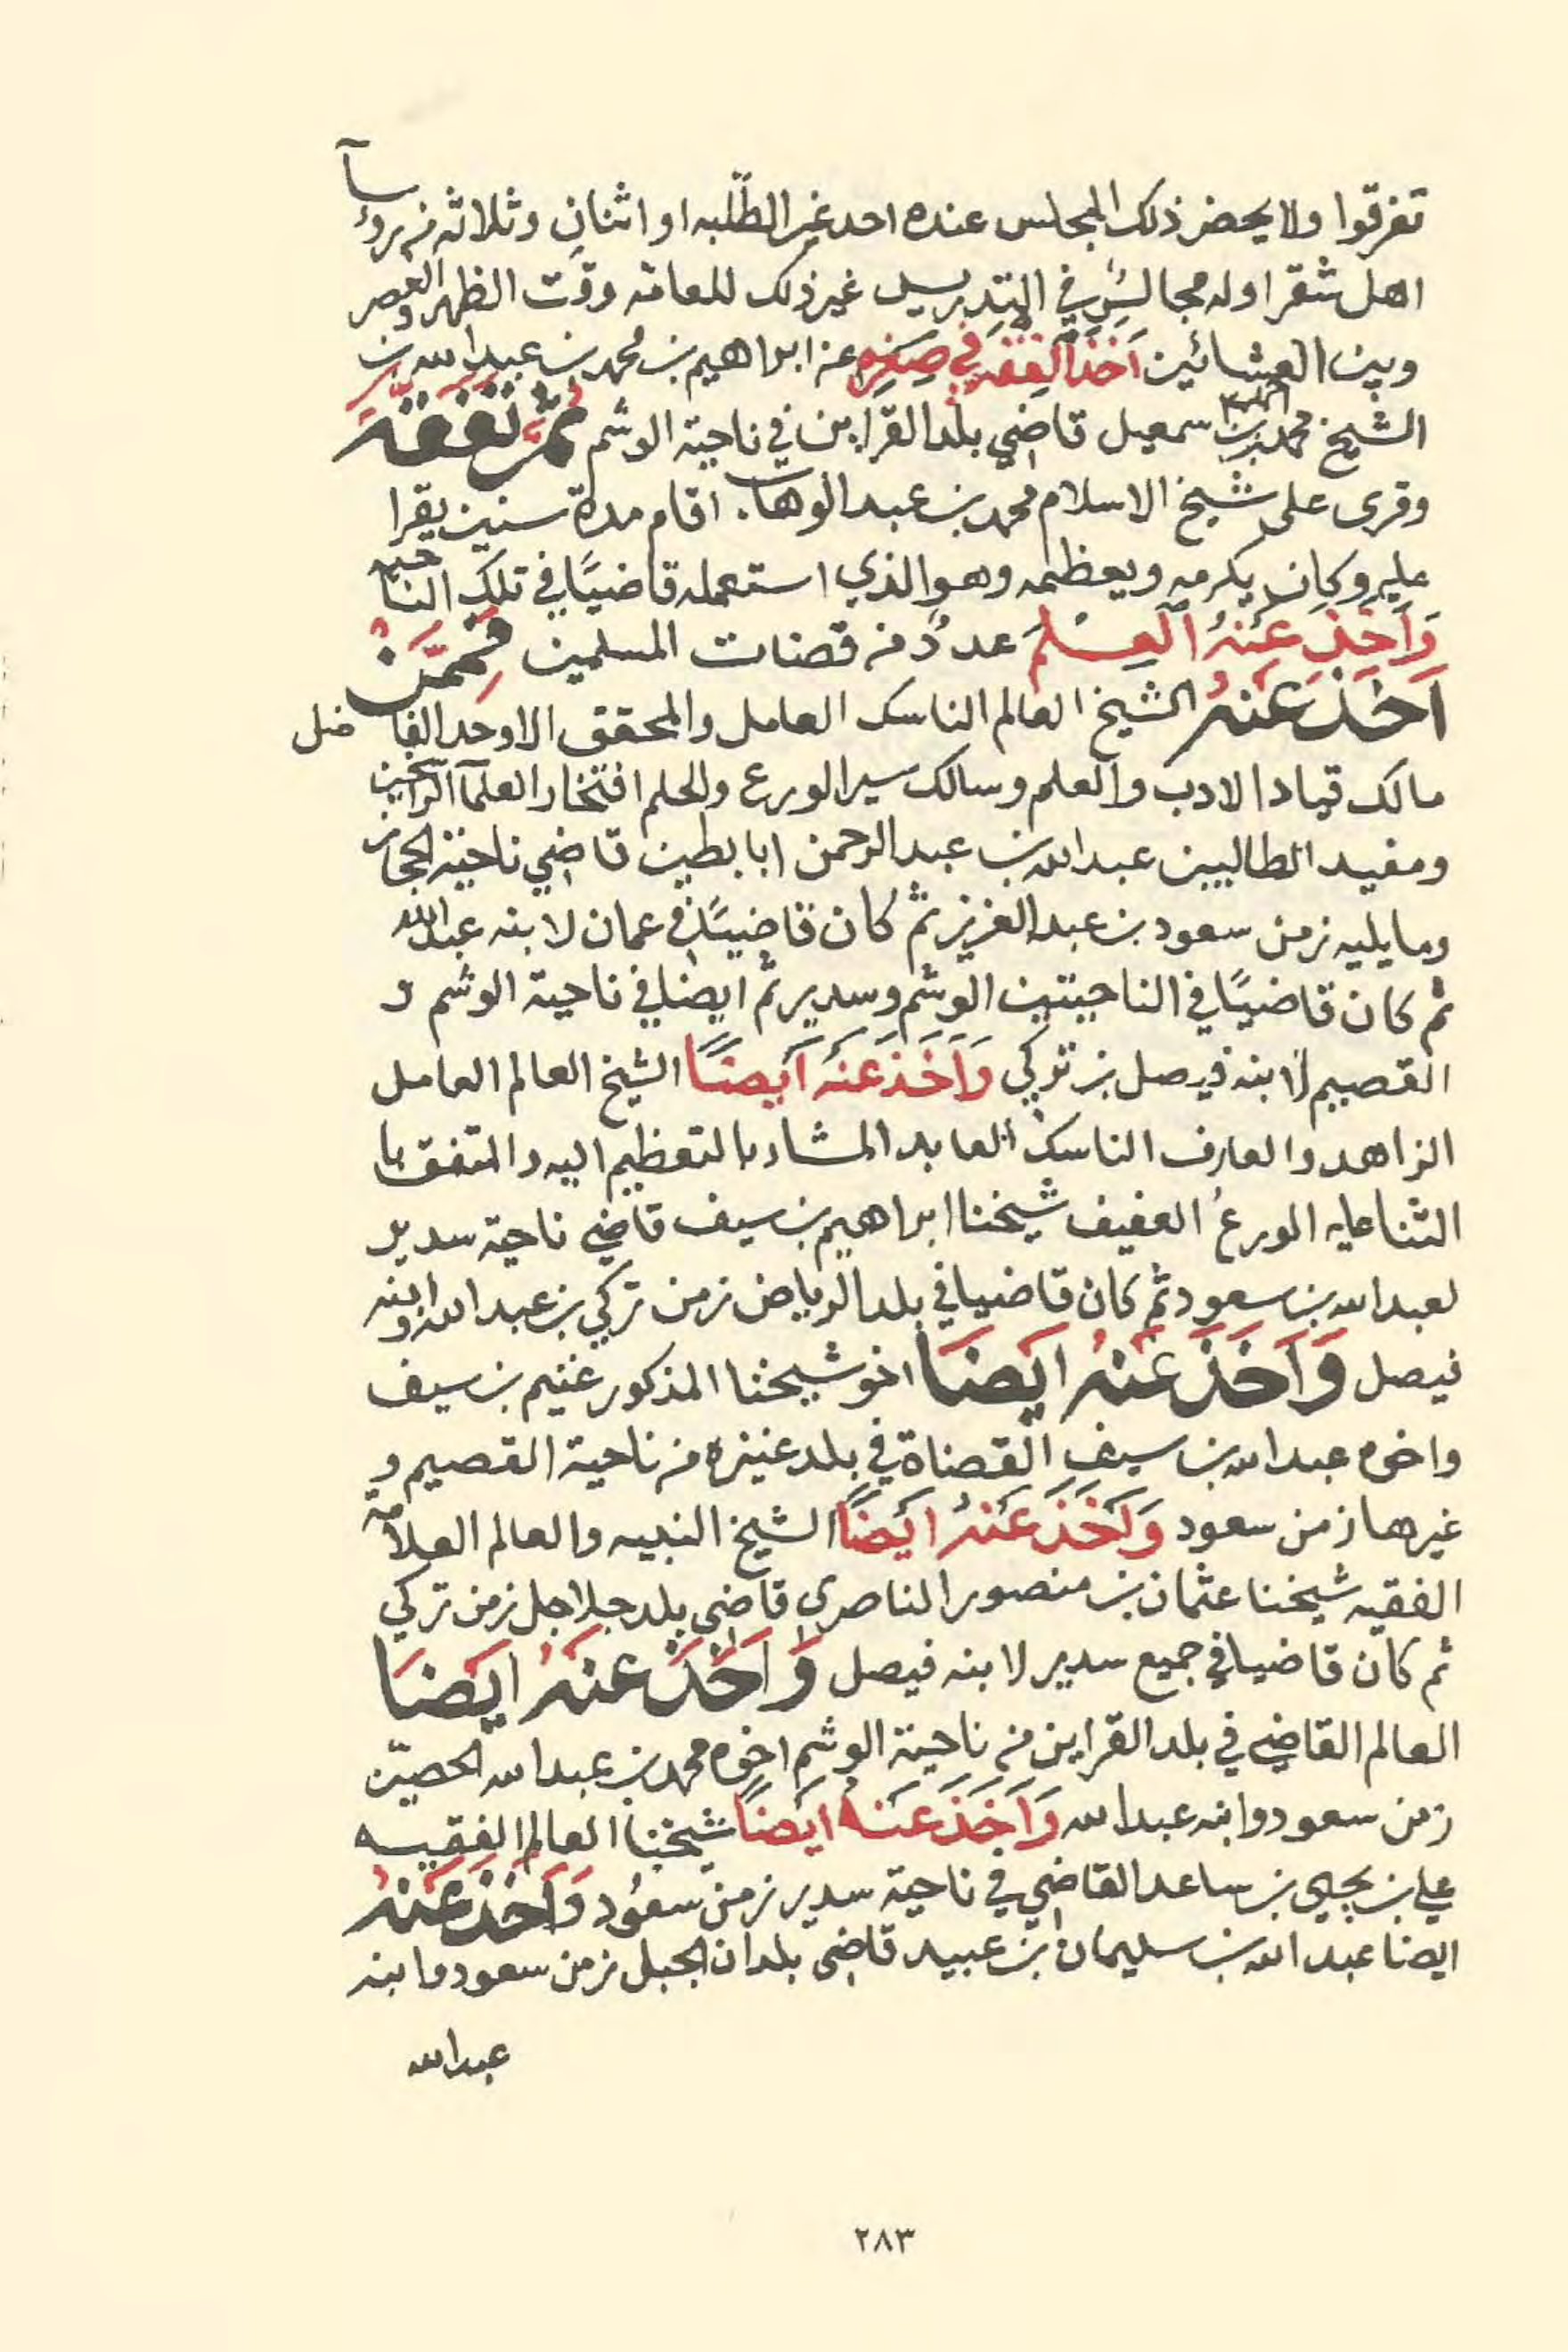 تفرقوا ولا يحضر ذلك المجلس عنده احد غير الطّلبه او اثنان وثلاثه من روؤسآ
اهل شقرا وله مجالسٌ في التدريس غير ذلك للعامّه وقت الظهر والعصر
وبين العشائين اَخَذَ الْفِقْهَ في صِغَرِهِ عن ابراهيم بن محمد بن عبدالله بن
الشيخ محمد بن احمد بن سمعيل قاضي بلد القراين في ناحية الوشم ثُمَّ تَفَقَّهَ
وقرى على شيخ الاسلام محمد بن عبدالوهاب اقام مدة سنين يقرا
عليه وكان يكرمه ويعظمه وهو الذي استعمله قاضيًا في تلك الناحيه
وَاَخَذَ عَنْهُ الْعِلْمَ عددٌ من قضات المسلمين فَمِمَّنْ
اَخَذَ عَنْهُ الشيخ العالم الناسك العامل والمحقق الاوحد الفاضل
مالك قياد الادب والعلم وسالك سير الورع والحلم افتخار العلمآ الراسخين
ومفيد الطالبين عبدالله بن عبدالرحمن ابابطين قاضي ناحية الحجاز
وما يليه زمن سعود بن عبدالعزيز ثم كان قاضيًا في عمان لابنه عبدالله
ثم كان قاضيًا في الناحيتين الوشم وسدير ثم ايضا في ناحية الوشم و
القصيم لابنه فيصل بن تركي وَاَخَذَ عَنْهُ اَيْضًا الشيخ العالم العامل
الزاهد والعارف الناسك العابد المشار بالتعظيم اليه والمتفق با
الثنا عليه الورع العفيف شيخنا ابراهيم بن سيف قاضي ناحية سدير
لعبدالله بن سعود ثم كان قاضيا في بلد الرياض زمن تركي بن عبدالله وابنه
فيصل وَاَخَذَ عَنْهُ ايْضًا اخو شيخنا المذكور غنيم بن سيف
واخوه عبدالله بن سيف القضاة في بلد عنيزه من ناحية القصيم و
غيرها زمن سعود وَاَخَذَ عَنْهُ ايْضًا الشيخ النبيه والعالم العلامّه
الفقيه شيخنا عثمان بن منصور الناصري قاضي بلد جلاجل زمن تركي
ثم كان قاضيا في جميع سدير لابنه فيصل وَاَخَذَ عَنْهُ ايْضًا
العالم القاضي في بلد القراين من ناحية الوشم اخوه محمد بن عبدالله الحصيّن
زمن سعود وابنه عبدالله وَاَخَذَ عَنْهُ ايْضًا شيخنا العالم الفقيه
علي بن يحيى بن ساعد القاضي في ناحية سدير زمن سعود وَاَخَذَ عَنْهُ
ايضا عبدالله بن سليمان بن عبيد قاضي بلدان الجبل زمن سعود وابنه
عبدالله
٢٨٣